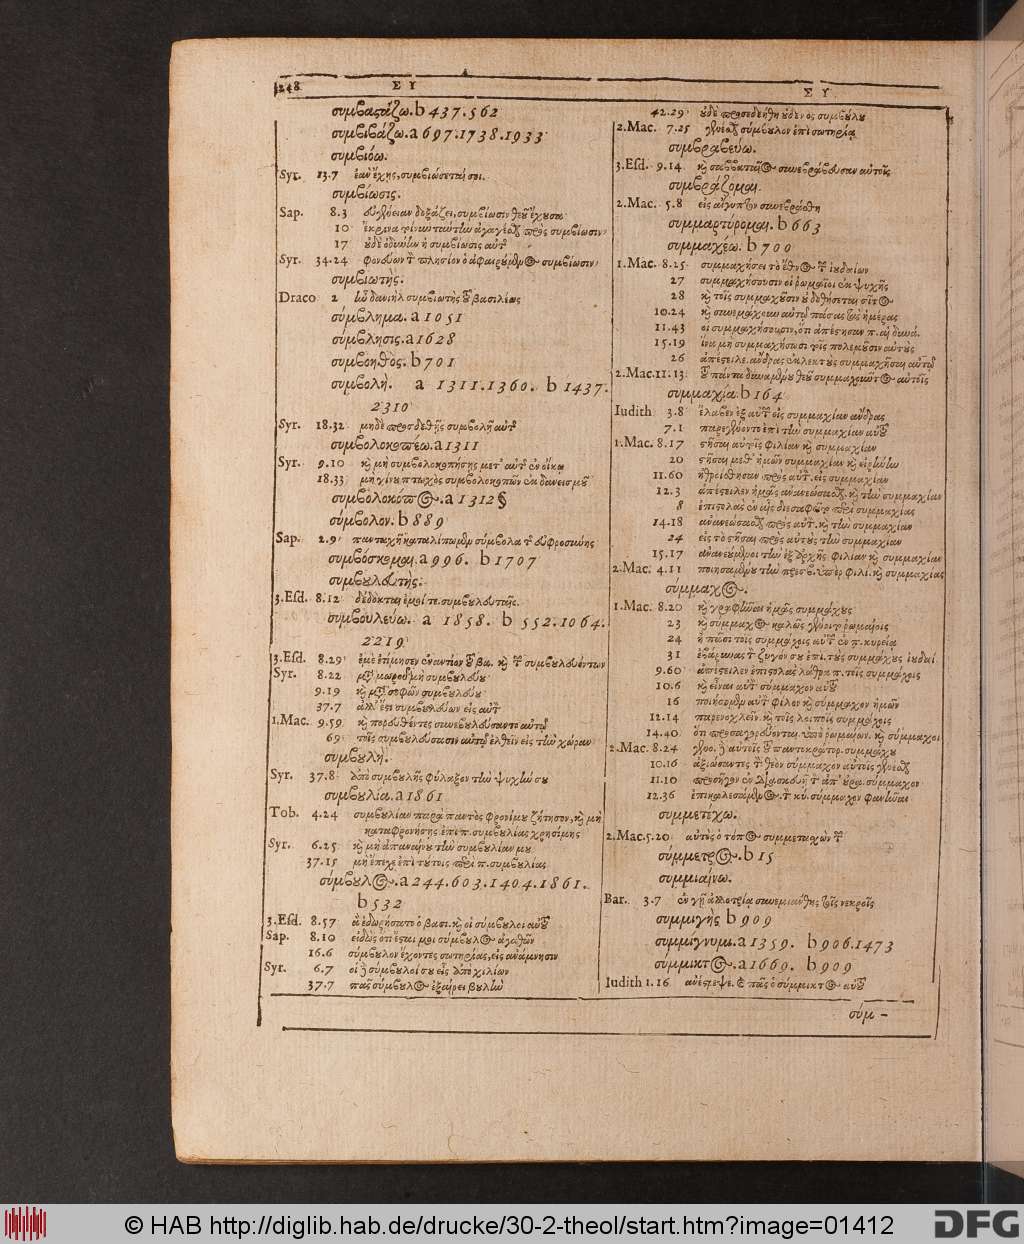 248 ΣΥ
συμβαστάζω. b 437.562
συμβιβάζω. a 697.1738.1933
συμβιόω.
Syr. 13.7 ἐὰν ἔχῃς, συμβιώσεταί σοι.
συμβίωσις.
Sap. 8.3 εὐγένειαν δοξάζει, συμβίωσιν θεοῦ ἔχουσα
10 ἔκρινα ταύτην ἀγαγέσθαι πρὸς συμβίωσιν
17 οὐδὲ ὀδύνην ἡ συμβίωσις αὐτῆς
Syr. 34.24 φονεύων τ πλησίον ὁ ἀφαιρούμενος συμβίωσιν
συμβιωτὴς.
Draco 2 δανιὴλ συμβιωτὴς τοῦ βασιλέως
σύμβλημα. a 1051
σύμβλησις. a 1628
συμβοηθὸς. b 701
συμβολή. a 1311.1360. b 1437.
2310
Syr. 18.32 μηδὲ προσδεθῇς συμβολῇ αὐτῆς
συμβολοκοπέω. a 1311
Syr. 9.10 καὶ μὴ συμβολοκοπήσῃς μετ' αὐτῆς ἐν οἴνῳ
18.33 μὴ γίνου πτωχὸς συμβολοκοπῶν ἐκ δανεισμοῦ
συμβολοκόπος. a 1312 §
σύμβολον. b 889
Sap. 2.9 πανταχῆ καταλίπωμεν σύμβολα τ εὐφροσύνης
συμβόσκομαι. a 996. b 1707
συμβουλευτὴς.
3.Esd. 8.12 δέδοκται ἐμοί τε. συμβουλευταῖς.
συμβουλεύω. a 1858. b 552.1064.
2219
3.Esd. 8.29 ἐμὲ ἐτίμησεν ἐναντίον τοῦ βα. καὶ τ συμβουλευόντων
Syr. 8.22 μετὰ μωροῦ μὴ συμβουλεύου
9.19 καὶ μετὰ σοφῶν συμβουλεύου
37.7 ἀλλ' ἔστι συμβουλεύων εἰς αὐτ
1.Mac. 9.59 καὶ πορευθέντες συνεβουλεύσαντο αὐτῷ
69 τοῖς συμβουλεύσασιν αὐτῷ ἐλθεῖν εἰς τὴν χώραν
συμβουλή.
Syr. 37.8 ἀπὸ συμβουλῆς φύλαξον τὴν ψυχήν σου
συμβουλία. a 1861
Tob. 4.24 συμβουλίαν παρὰ παντὸς φρονίμου ζήτησον, καὶ μὴ
καταφρονήσῃς ἐπὶ π. συμβουλίας χρησίμης
Syr. 6.25 καὶ μὴ ἀπαναίνου τὴν συμβουλίαν μου
37.15 μὴ ἔπεχε ἐπὶ τούτοις περὶ π. συμβουλίας
σύμβουλος. a 244.603.1404.1861.
b 532
3.Esd. 8.57 ἃ ἐδωρήσατο ὁ βασι. καὶ οἱ σύμβουλοι αὐτοῦ
Sap. 8.10 εἰδὼς ὅτι ἔσται μοι σύμβουλος ἀγαθῶν
16.6 σύμβουλον ἔχοντες σωτηρίας, εἰς ἀνάμνησιν
Syr. 6.7 οἱ δὲ σύμβουλοί σου εἷς ἀπὸ χιλίων
37.7 πᾶς σύμβουλος ἐξαίρει βουλὴν
ΣΥ
42.29 οὐδὲ προσεδεήθη οὐδενὸς συμβούλου
2.Mac. 7.25 γενέσθαι σύμβουλον ἐπὶ σωτηρίᾳ
συμβραβεύω.
3.Esd. 9.14 καὶ σαββαταῖος συνεβράβευσαν αὐτοῖς
συμβράζομαι.
2.Mac. 5.8 εἰς αἴγυπτον συνεβράσθη
συμμαρτύρομαι. b 663
συμμαχέω. b 700
1.Mac. 8.25 συμμαχήσει τὸ ἔθνος τ ἰουδαίων
27 συμμαχήσουσιν οἱ ῥωμαῖοι ἐκ ψυχῆς
28 καὶ τοῖς συμμαχοῦσιν οὐ δοθήσεται σῖτος
10.24 καὶ συνεμάχουν αὐτῷ πάσας τὰς ἡμέρας
11.43 οἳ συμμαχήσουσιν, ὅτι ἀπέστησαν π. αἱ δυνά.
15.19 ἵνα μὴ συμμαχήσωσι τοῖς πολεμοῦσιν αὐτοὺς
26 ἀπέστειλε. ἄνδρας ἐκλεκτοὺς συμμαχῆσαι αὐτῷ
2.Mac. 11.13 τοῦ πάντα δυναμένου θεοῦ συμμαχοῦντος αὐτοῖς
συμμαχία. b 164
Iudith 3.8 ἔλαβεν ἐξ αὐτ εἰς συμμαχίαν ἄνδρας
7.1 παρεγένοντο ἐπὶ τὴν συμμαχίαν αὐτοῦ
1.Mac. 8.17 στῆσαι αὐτοῖς φιλίαν καὶ συμμαχίαν
20 στῆσαι μεθ' ἡμῶν συμμαχίαν καὶ εἰρήνην
11.60 ἠθροίσθησαν πρὸς αὐτ. εἰς συμμαχίαν
12.3 ἀπέστειλεν ἡμᾶς ἀνανεώσασθαι καὶ τὴν συμμαχίαν
8 ἐπιστολὰς ἐν αἷς διεσαφεῖτο περὶ συμμαχίας
14.18 ἀνανεώσασθαι πρὸς αὐτ. καὶ τὴν συμμαχίαν
24 εἰς τὸ στῆσαι πρὸς αὐτοὺς τὴν συμμαχίαν
15.17 ἀνανεούμενοι τὴν ἐξ ἀρχῆς φιλίαν καὶ συμμαχίαν
2.Mac. 4.11 ποιησαμένου τὴν πρεσβ. ὑπὲρ φιλί. καὶ συμμαχίας
σύμμαχος.
1.Mac. 8.20 καὶ γραφῆναι ἡμᾶς συμμάχους
23 καὶ σύμμαχ καλῶς γένοιτο ῥωμαίοις
24 ἢ πᾶσι τοῖς συμμάχοις αὐτ ἐν π. κυρείᾳ
31 ἐβάρυνας τ ζυγόν σου ἐπὶ τοὺς συμμάχους ἰουδαί
9.60 ἀπέστειλεν ἐπιστολὰς λάθρα π. τοῖς συμμάχοις
10.6 καὶ εἶναι αὐτ σύμμαχον αὐτοῦ
16 ποιήσωμεν αὐτ φίλον καὶ σύμμαχον ἡμῶν
12.14 παρενοχλεῖν καὶ τοῖς λοιποῖς συμμάχοις
14.40 ὅτι προσαγορεύονται ὑπὸ ῥωμαίων. καὶ σύμμαχοι
2.Mac. 8.24 γενο. δὲ αὐτοῖς τοῦ παντοκράτορ. συμμάχου
10.16 ἀξιώσαντες τ θεὸν σύμμαχον αὐτοῖς γενέσθαι
11.10 προσῆγον ἐν διασκευῇ τ ἀπ' οὐρα. σύμμαχον
12.36 ἐπικαλεσάμενος τ κύ. σύμμαχον φανῆναι
συμμετέχω.
2.Mac. 5.20 αὐτὸς ὁ τόπος συμμετασχὼν τ
σύμμετρος. b 15
συμμιαίνω.
Bar. 3.7 ἐν γῇ ἀλλοτρίᾳ συνεμιάνθης τοῖς νεκροῖς
συμμιγὴς b 909
συμμίγνυμι. a 1359. b 906.1473
σύμμικτος. a 1669. b 909
Iudith 1.16 ἀνέστρεψε. πᾶς ὁ σύμμικτος αὐτοῦ
σύμ-
© HAB http://diglib.hab.de/drucke/30-2-theol/start.htm?image=01412
DFG